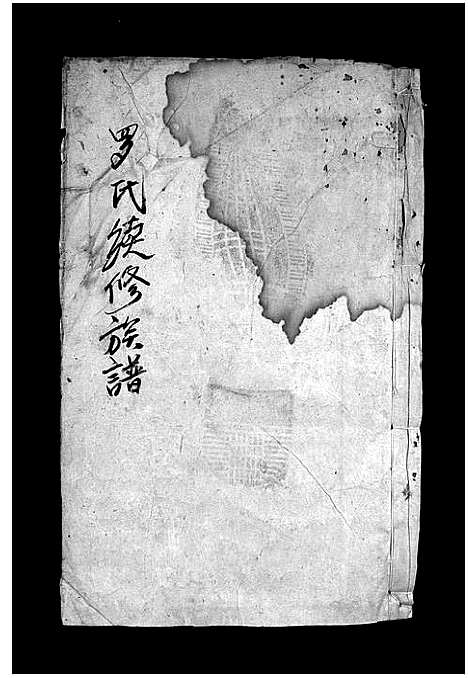 罗氏續修族譜